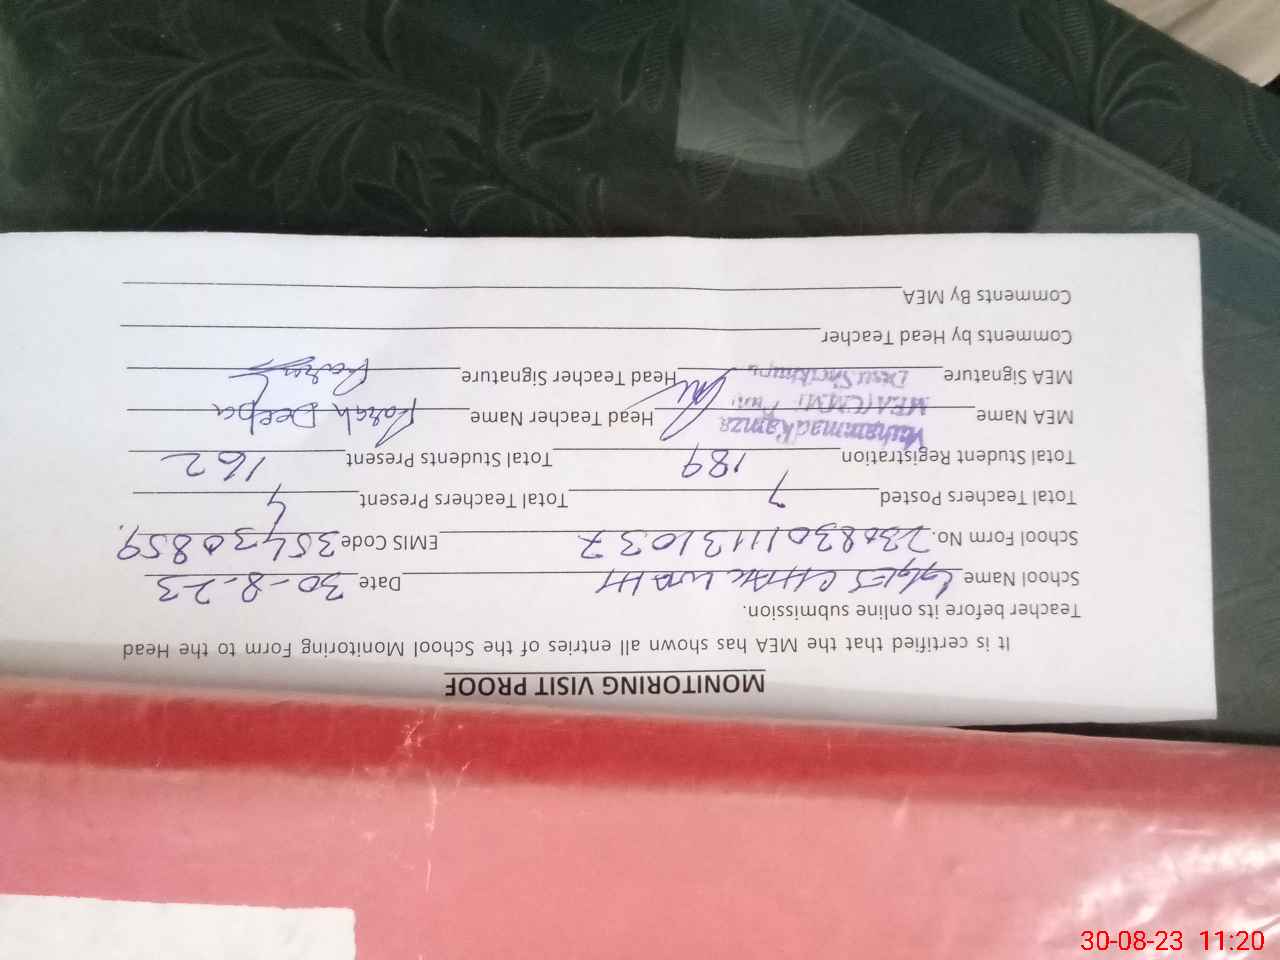 MONITORING VISIT PROOF
It is certified that the MEA has shown all entries of the School Monitoring Form to the Head
Teacher before its online submission.
School Name GGES CHAK Date 30-8-23
School Form No. 230830111131037 EMIS Code 35430859
Total Teachers Posted 7 Total Teachers Present 4
Total Student Registration 189 Total Students Present 162
MEA Name Muhammad Hamza Head Teacher Name Farah Deeba
MEA (CMM)
MEA Signature Head Teacher Signature Farah
Comments by Head Teacher
Comments By MEA
30-08-23 11:20